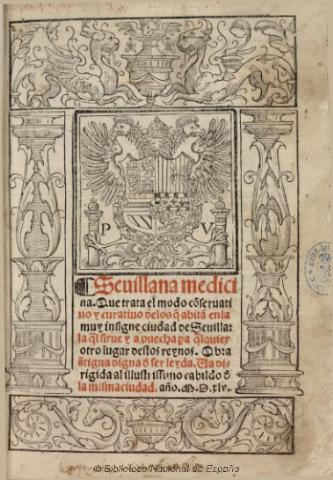 P V
¶ Seuillana medici
na. Que trata el modo cõseruati
uo y curatiuo delos q̃ abitã enla
muy insigne ciudad de Seuilla:
la q̃l sirue y aprouecha pa q̃lquier
otro lugar destos reynos. Obra
ãtigua digna d̃ ser leyda. Va di
rigida al illustrissimo cabildo d̃
la misma ciudad. año. M.D.xlv.
© Biblioteca Nacional de España